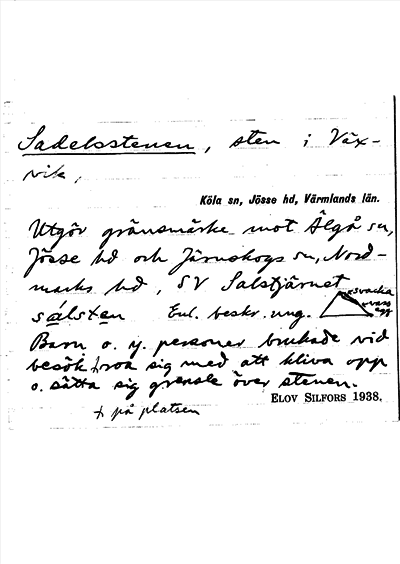 Sadelsstenen, sten i Väx-
vik,
Köla sn, Jösse hd, Värmlands län.
Utgör gränsmärke mot Älgå sn,
Jösse hd och Järnskogs sn, Nord-
marks hd, SV Salstjärnet
sálsten Enl. beskr. ung.
svacka
vass
egg
Barn o. y. personer brukade vid
besök ⁒ roa sig med att kliva opp
o. sätta sig grensle över stenen.
⁒ på platsen
ELOV SILFORS 1938.